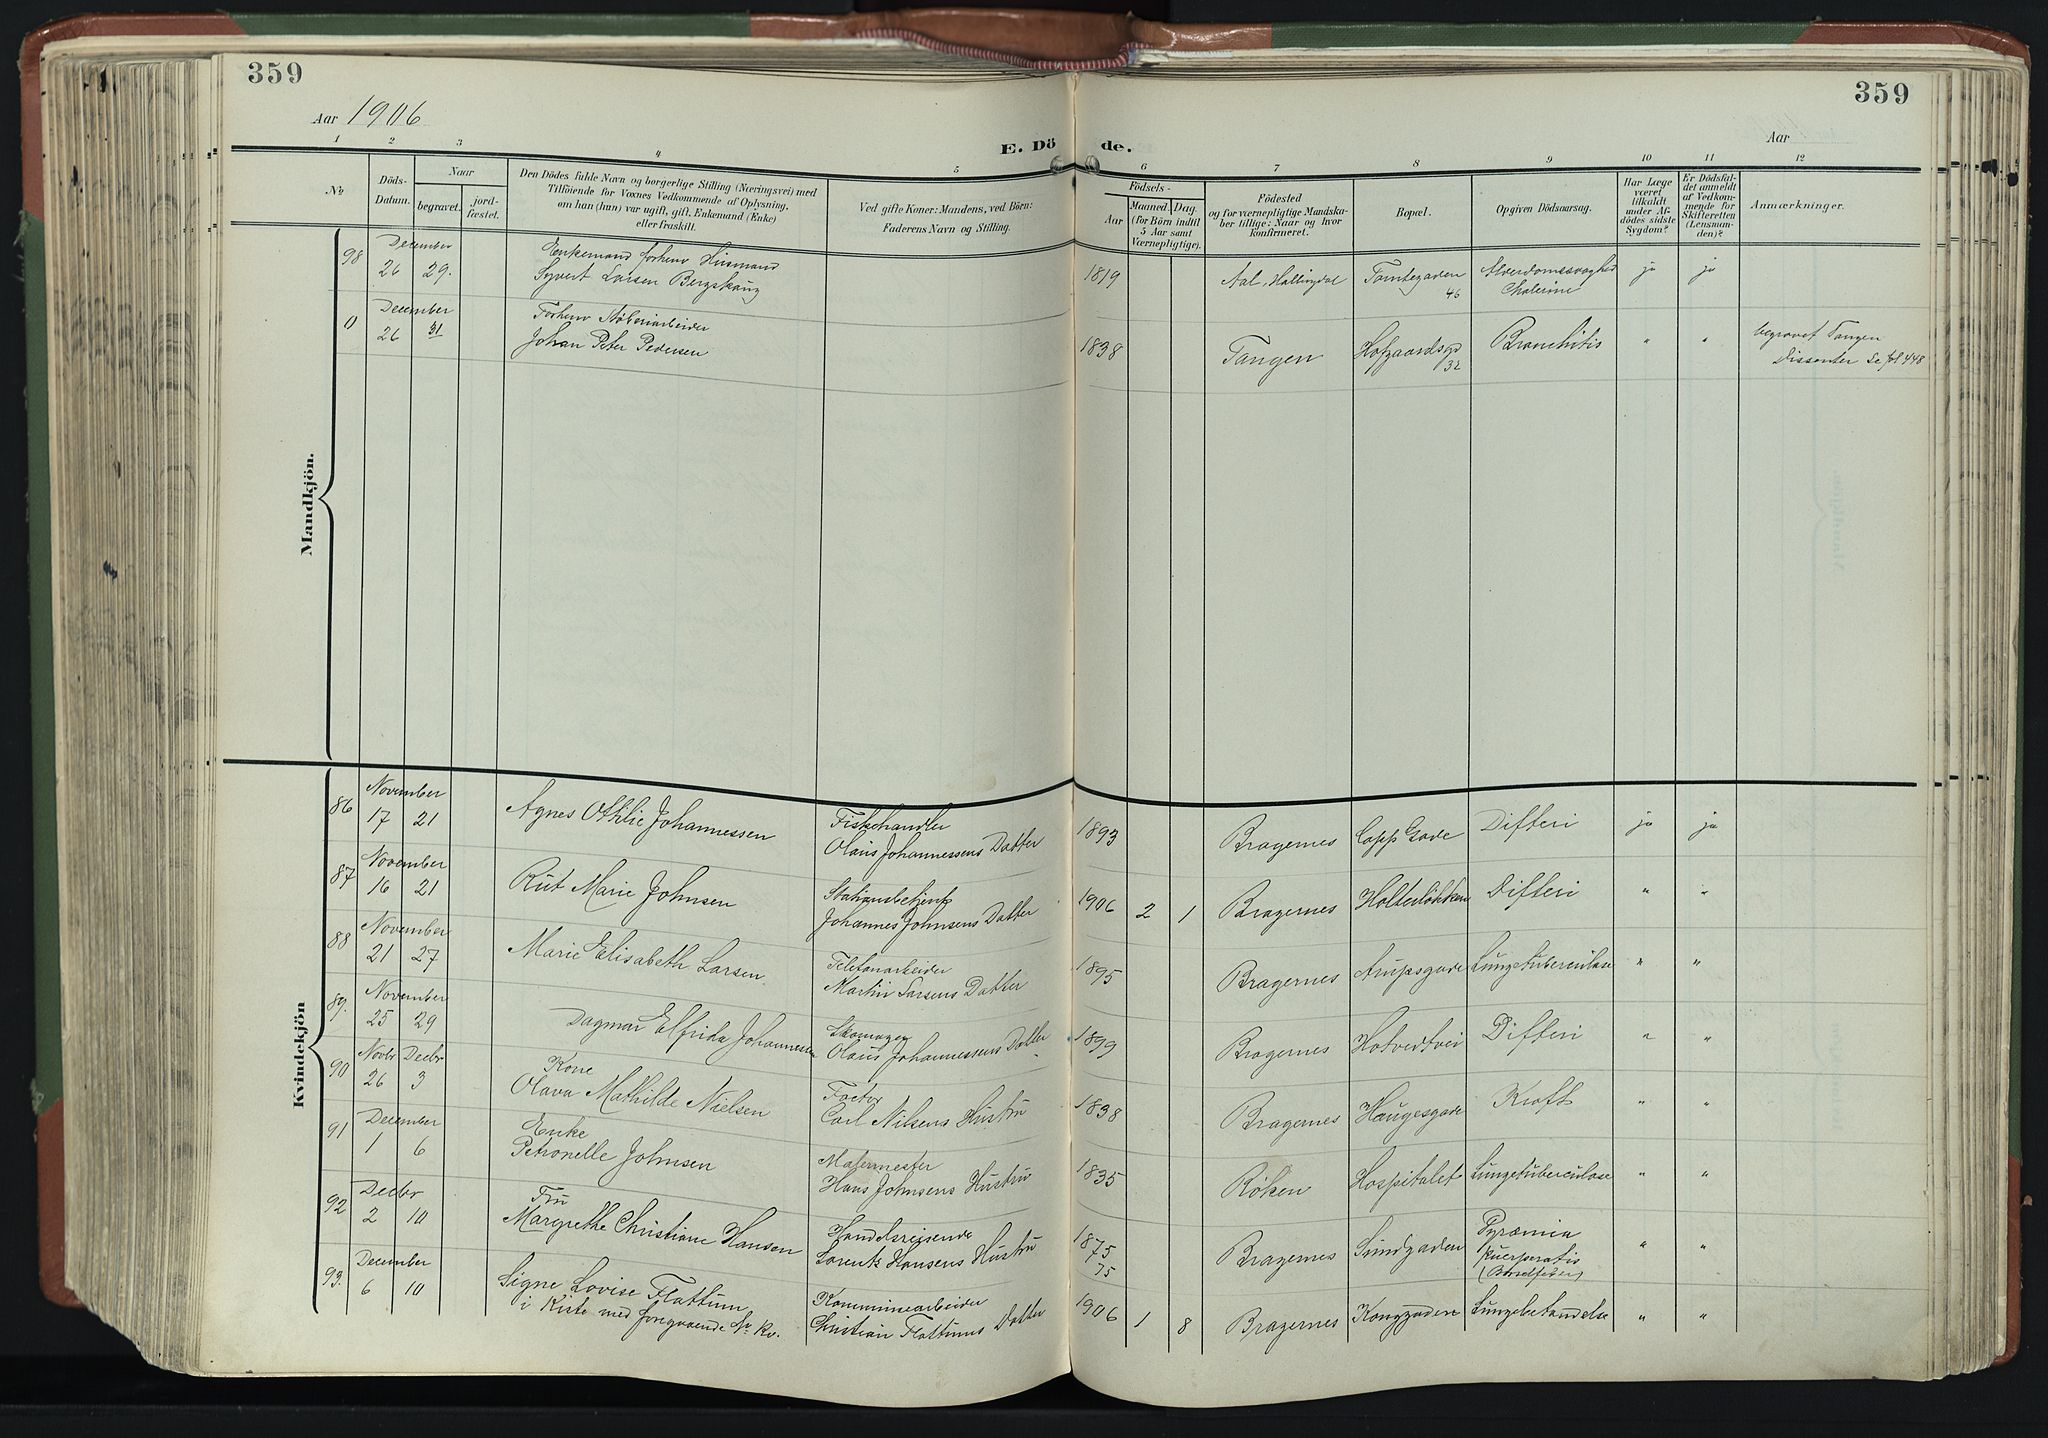 359
359
Aar 1906
Aar
E. Dö de.
1 2 3 4 5 6 7 8 9 10 11 12
No
Döds-Datum.
Naar
begravet.
jord-fæstet.
Den Dödes fulde Navn og borgerlige Stilling (Næringsvei) med
Tilföiende for Voxnes Vedkommende af Oplysning,
om han (hun) var ugift, gift, Enkemand (Enke)
eller fraskilt.
Ved gifte Koner: Mandens, ved Börn:
Faderens Navn og Stilling.
Födsels-
Aar
Maaned. Dag.
(for Börn indtil
5 Aar samt
Værnepligtige).
Födested
og for værnepligtige Mandska-
ber tillige: Naar og hvor
konfirmeret.
Bopæl.
Opgiven Dödsaarsag.
Har Læge
været
tilkaldt
under Af-
dödes sidste
Sygdom?
Er Dödsfal-
det anmeldt
af Vedkom-
mende for
Skifteretten
(Lensman-
den)?
Anmærkninger.
Mandkjön.
98 December
26 29.
Enkemand forhenv Husmand
Syvert Larsen Bergskaug
1819 Aal, Hallingdal Tomtegaden 46 Alderdomssvaghed ja ja
0 December
26 31
Forhenv Støberiarbeider
Johan Peter Pedersen
1838 Tangen Hofgaardsgd 32 Bronchitis " " begravet Tangen
Dissenter Se fol 448
Kvindekjön
86 November
17 21
Agnes Othilie Johannessen
Fiskehandler
Olaus Johannessens Datter
1893 Bragernes Capp Gade Difteri ja ja
87 November
16 21
Rut Marie Johnsen
Stationsbetjent
Johannes Johnsens Datter
1906 2 1 Bragernes Holterløkken Difteri " "
88 November
21 27
Marie Elisabeth Larsen.
Telefonarbeider
Martin Larsens Datter
1895 Bragernes Arupsgade Lungetuberculose " "
89. November
25 29
Dagmar Elfrida Johannesen
Skomager
Olaus Johannessens Datter
1899 Bragernes Hotvedtvei Difteri " "
90 Novbr Decbr
26 3
Kone
Olava Mathilde Nielsen
Factor
Carl Nilsens Hustru
1838 Bragernes Haugesgade Kræft " "
91 December
1 6
Enke
Petronelle Johnsen
Malermester
Hans Johnsens Hustru
1835 Røken Hospitalet Lungetuberculose " "
92 Decbr
2 10
Fru
Margrethe Christiane Hansen
Handelsreisende
Lorentz Hansens Hustru
1875
75
Bragernes Sundgaden Pyræmia
puerperalis
(Barselfeber) " "
93. December
6 10
Signe Lovise Flattum
i Kiste med foregaaende Nr Kv.
Kommunearbeider
Christian Flattums Datter
1906 1 8 Bragernes Konggaden Lungebetændelse " "